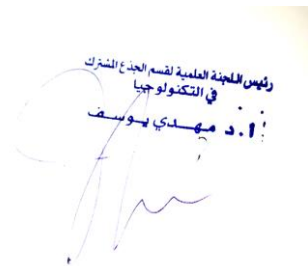 رئيس اللجنة العلمية لقسم الجذع المشترك
في التكنولوجيا
أ. د مهدي يوسف